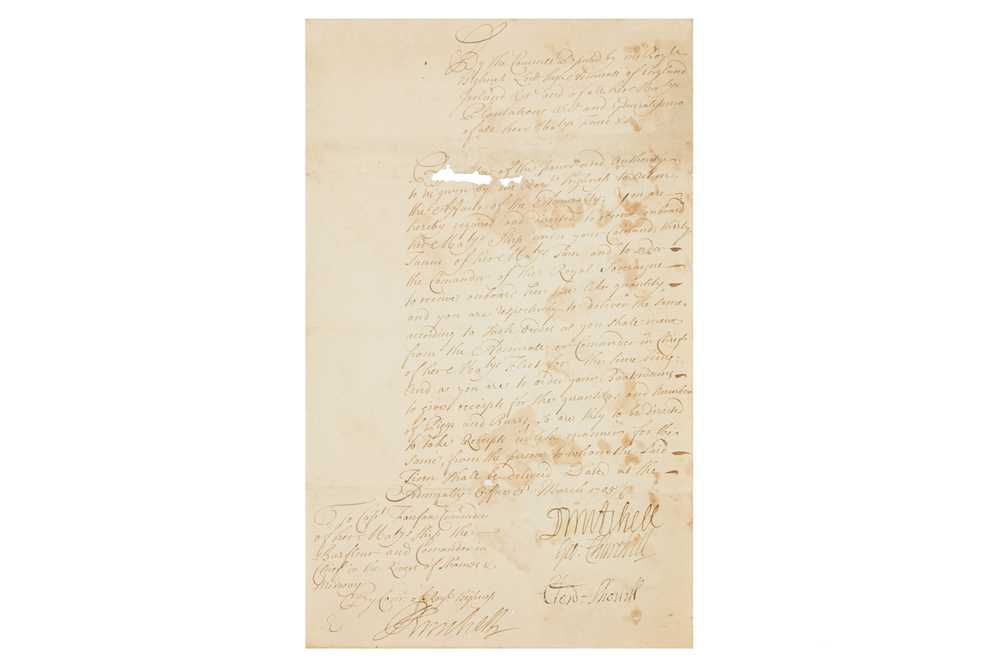 By the Councell Deputed by his Royll
Highness Lord high Admirall of England
Ireland &ca. and of all her Maties
Plantations &ca. and Generalissimo
of all her Matys Forces &ca.
of the power and Authority
to us given by his Royll Highness to
the Affairs of the Admiralty; You are
hereby required and directed to receive onboard
her Matys Ship under your Comand, thirty
Tunns of her Matys Iron and to order
the Comander of the Royal Soveraigne
to receive onboard her the like quantity
and you are respectively to deliver the same
according to such Orders as you shall receive
from the Admirall or Comander in Chief
of her Matys Fleet for the time being;
And as you are to order your Boatswaine
to give receipts for the quantity and Number
of Piggs and Barrs, so are they to be directed
to take Receipts in like manner for the
same, from the persons to whom the said
Iron shall be delivered Dated at the
Admiralty Office March 1703
To Capt. Fairfax Comander
of her Matys Ship the
Barfleur and Comander in
Chief in the River of Thames &
Medway
D Mitchell
Geo: Churchill
Clowd Shovell
By Com. of Royll Highness